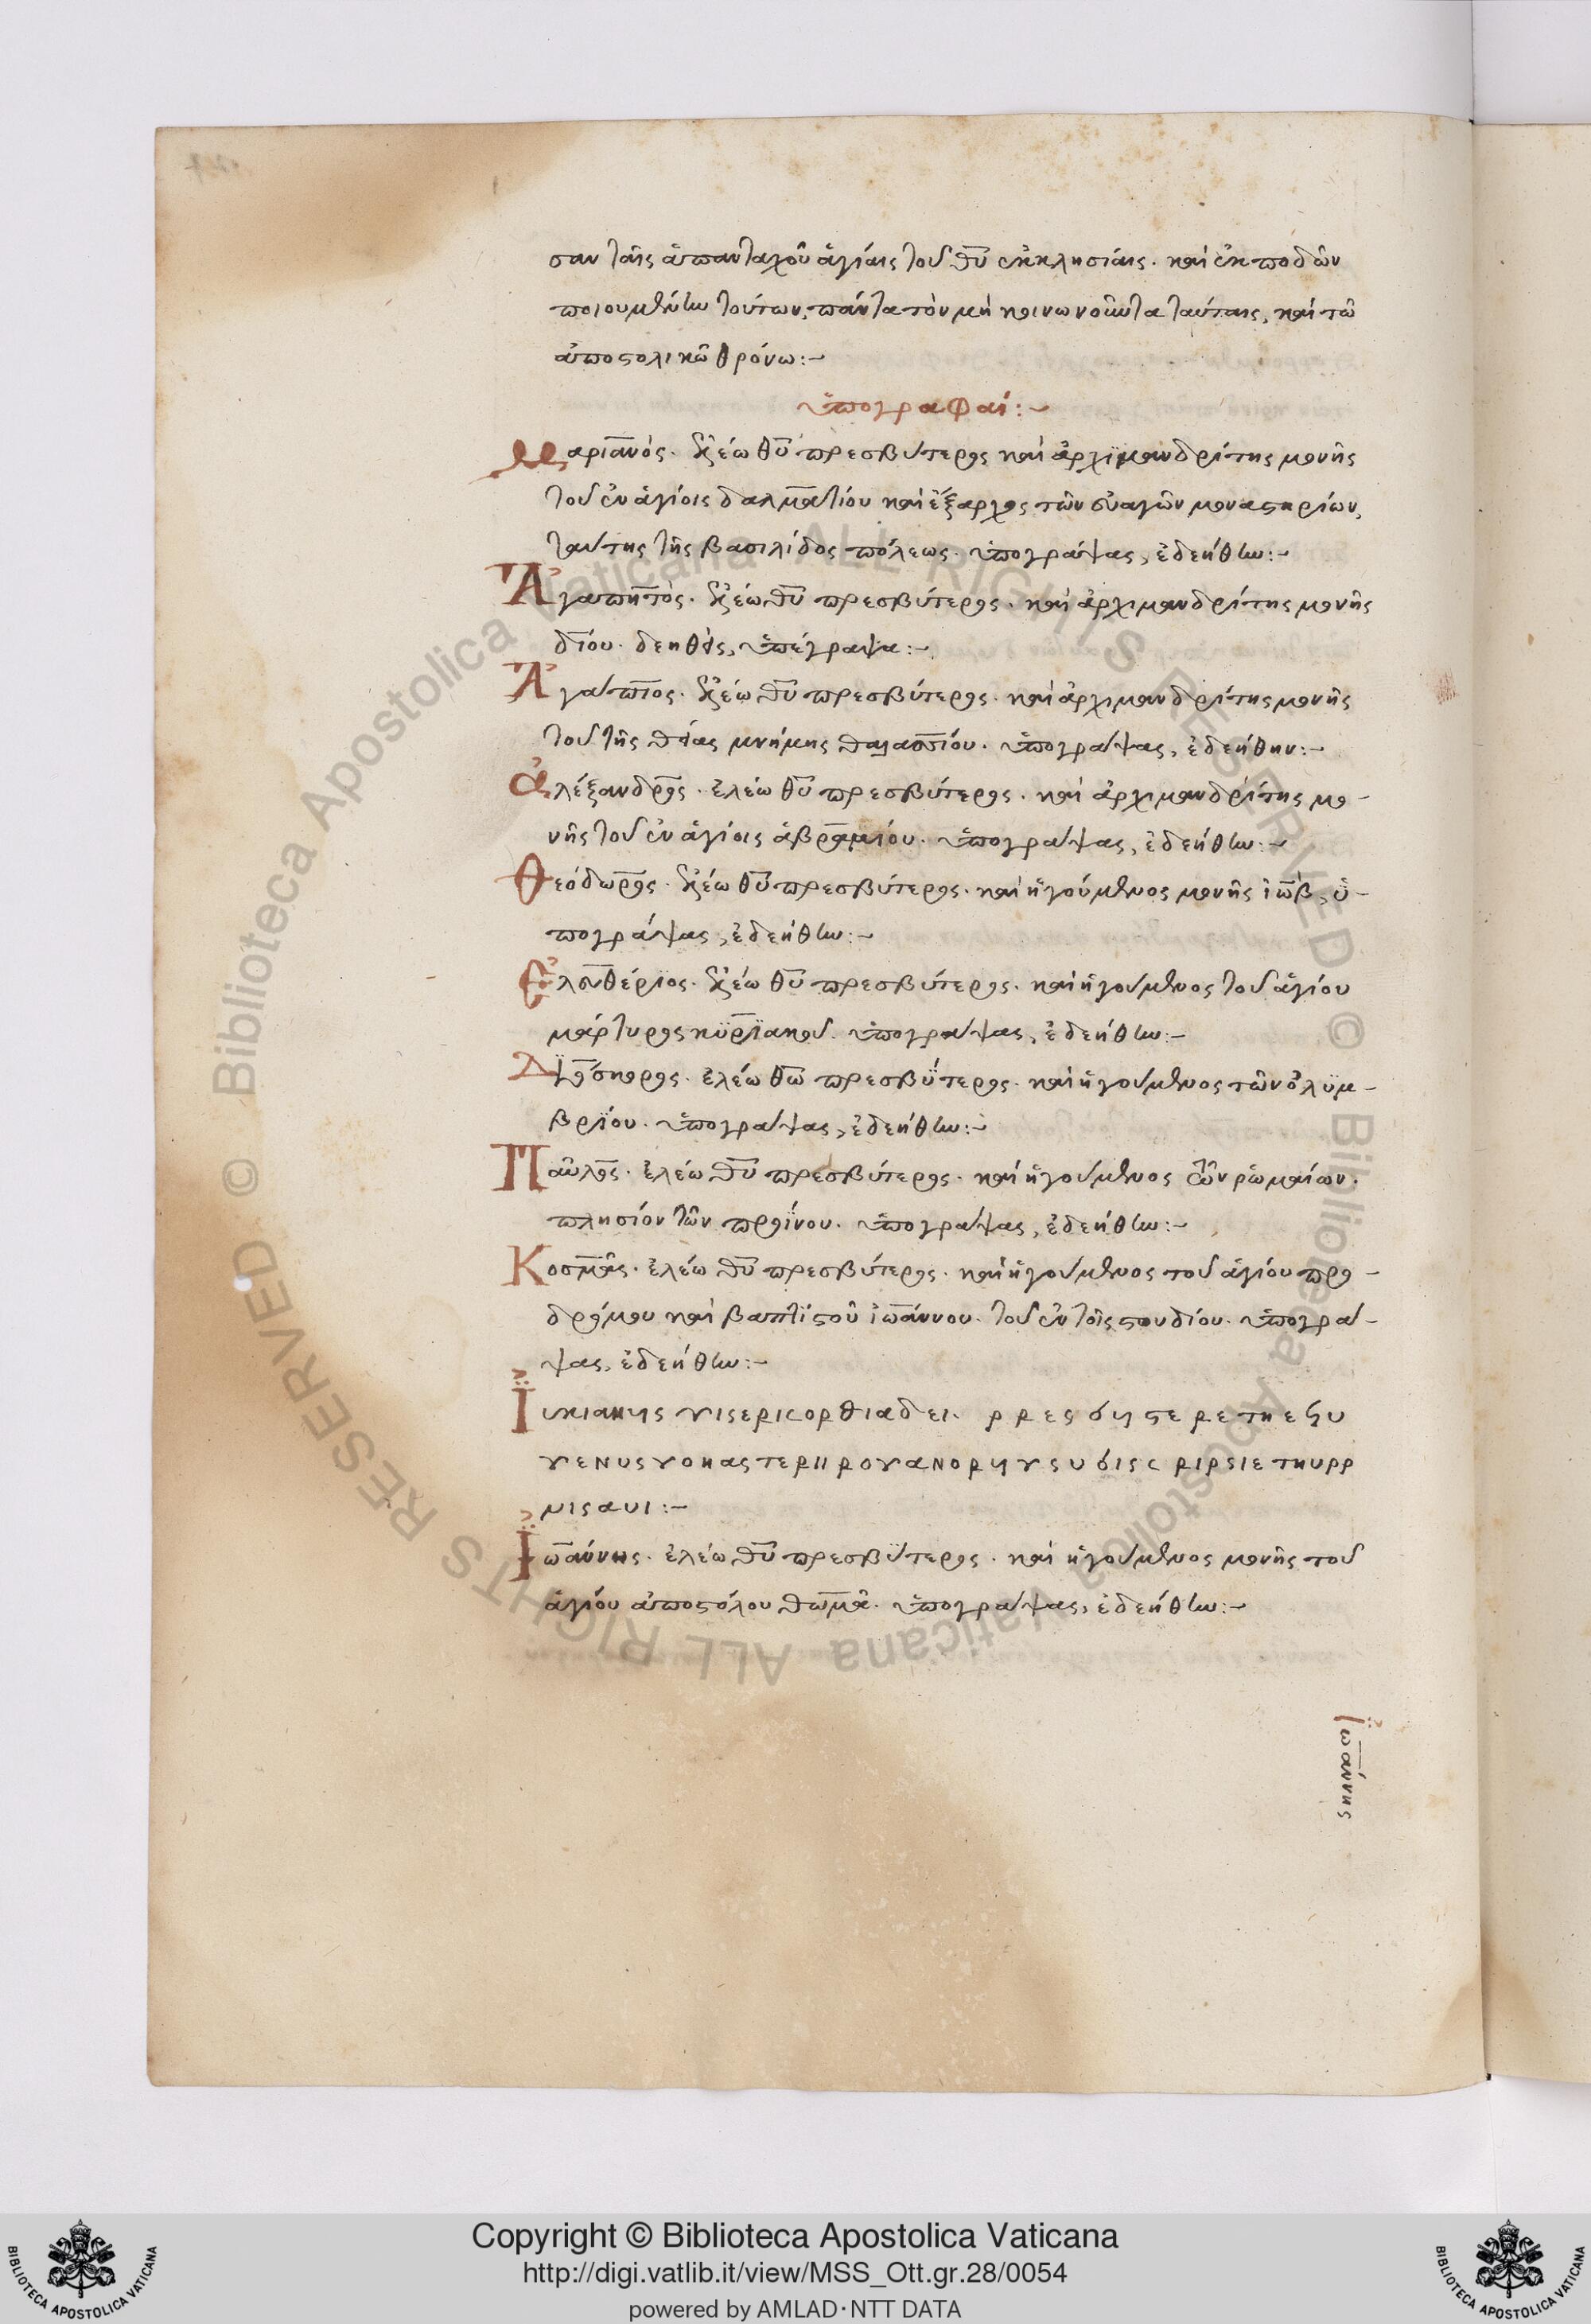 σαν ταῖς ἁπανταχοῦ ἁγίαις τοῦ θῦ ἐκκλησίαις. καὶ ἐκ ποδῶν
ποιουμένην τούτων, πάντα τὸν μὴ κοινωνοῦντα ταύταις, καὶ τῶ
ἀποστολικῶ θρόνω:~
ὑπογραφαί:~
Μαριανὸς. ἐλέω θῦ πρεσβύτερος καὶ ἀρχιμανδρίτης μονῆς
τοῦ ἐν ἁγίοις δαλματίου καὶ ἔξαρχος τῶν εὐαγῶν μοναστηρίων,
ταύτης τῆς βασιλίδος πόλεως. ὑπογράψας, ἐδεήθην:~
Ἀγαπητὸς. ἐλέω θῦ πρεσβύτερος. καὶ ἀρχιμανδρίτης μονῆς
δίου. δεηθεὶς, ὑπέγραψα:~
Ἀγάπιος. ἐλέω θῦ πρεσβύτερος. καὶ ἀρχιμανδρίτης μονῆς
τοῦ τῆς θείας μνήμης θαλασσίου. ὑπογράψας, ἐδεήθην:~
ἀλέξανδρος. ἐλέω θῦ πρεσβύτερος. καὶ ἀρχιμανδρίτης μο-
νῆς τοῦ ἐν ἁγίοις ἀβραμίου. ὑπογράψας, ἐδεήθην:~
Θεόδωρος. ἐλέω θῦ πρεσβύτερος. καὶ ἡγούμενος μονῆς ἰὼβ, ὑ-
πογράψας, ἐδεήθην:~
Ἐλευθέριος. ἐλέω θῦ πρεσβύτερος. καὶ ἡγούμενος τοῦ ἁγίου
μάρτυρος κυριακοῦ. ὑπογράψας, ἐδεήθην:~
Διόσκορος. ἐλέω θῦ πρεσβύτερος. καὶ ἡγούμενος τῶν ὀλυμ-
βρίου. ὑπογράψας, ἐδεήθην:~
Παῦλος. ἐλέω θῦ πρεσβύτερος. καὶ ἡγούμενος τῶν ῥωμαίων.
πλησίον τῶν πρίνου. ὑπογράψας, ἐδεήθην:~
Κοσμᾶς. ἐλέω θῦ πρεσβύτερος. καὶ ἡγούμενος τοῦ ἁγίου προ-
δρόμου καὶ βαπτιστοῦ ἰωάννου. τοῦ ἐν τοῖς στουδίου. ὑπογρά-
ψας, ἐδεήθην:~
μισαυι:~
Ἰωάννης. ἐλέω θῦ πρεσβύτερος. καὶ ἡγούμενος μονῆς τοῦ
ἁγίου ἀποστόλου θωμᾶ. ὑπογράψας, ἐδεήθην:~
ἰωάννης
© Biblioteca Apostolica Vaticana ALL RIGHTS RESERVED © Biblioteca Apostolica Vaticana ALL RIGHTS RESERVED
Copyright © Biblioteca Apostolica Vaticana
http://digi.vatlib.it/view/MSS_Ott.gr.28/0054
powered by AMLAD·NTT DATA
BIBLIOTECA APOSTOLICA VATICANA
BIBLIOTECA APOSTOLICA VATICANA